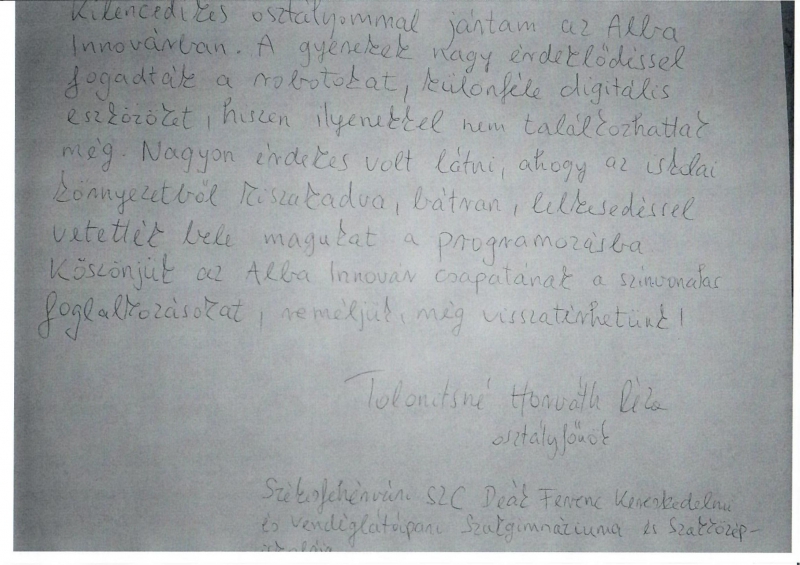 Kilencedikes osztályommal jártam az Alba
Innovárban. A gyerekek nagy érdeklődéssel
fogadták a robotokat, különféle digitális
eszközöket, hiszen ilyenekkel nem találkozhattak
még. Nagyon érdekes volt látni, ahogy az iskolai
környezetből kiszakadva, bátran, lelkesedéssel
vetették bele magukat a programozásba
Köszönjük az Alba Innovár csapatának a színvonalas
foglalkozásokat, reméljük, még visszatérhetünk!
Horváth
osztályfőnök
Székesfehérvári SZC Deák Ferenc Kereskedelmi
és Vendéglátóipari Szakgimnáziuma és Szakközép-